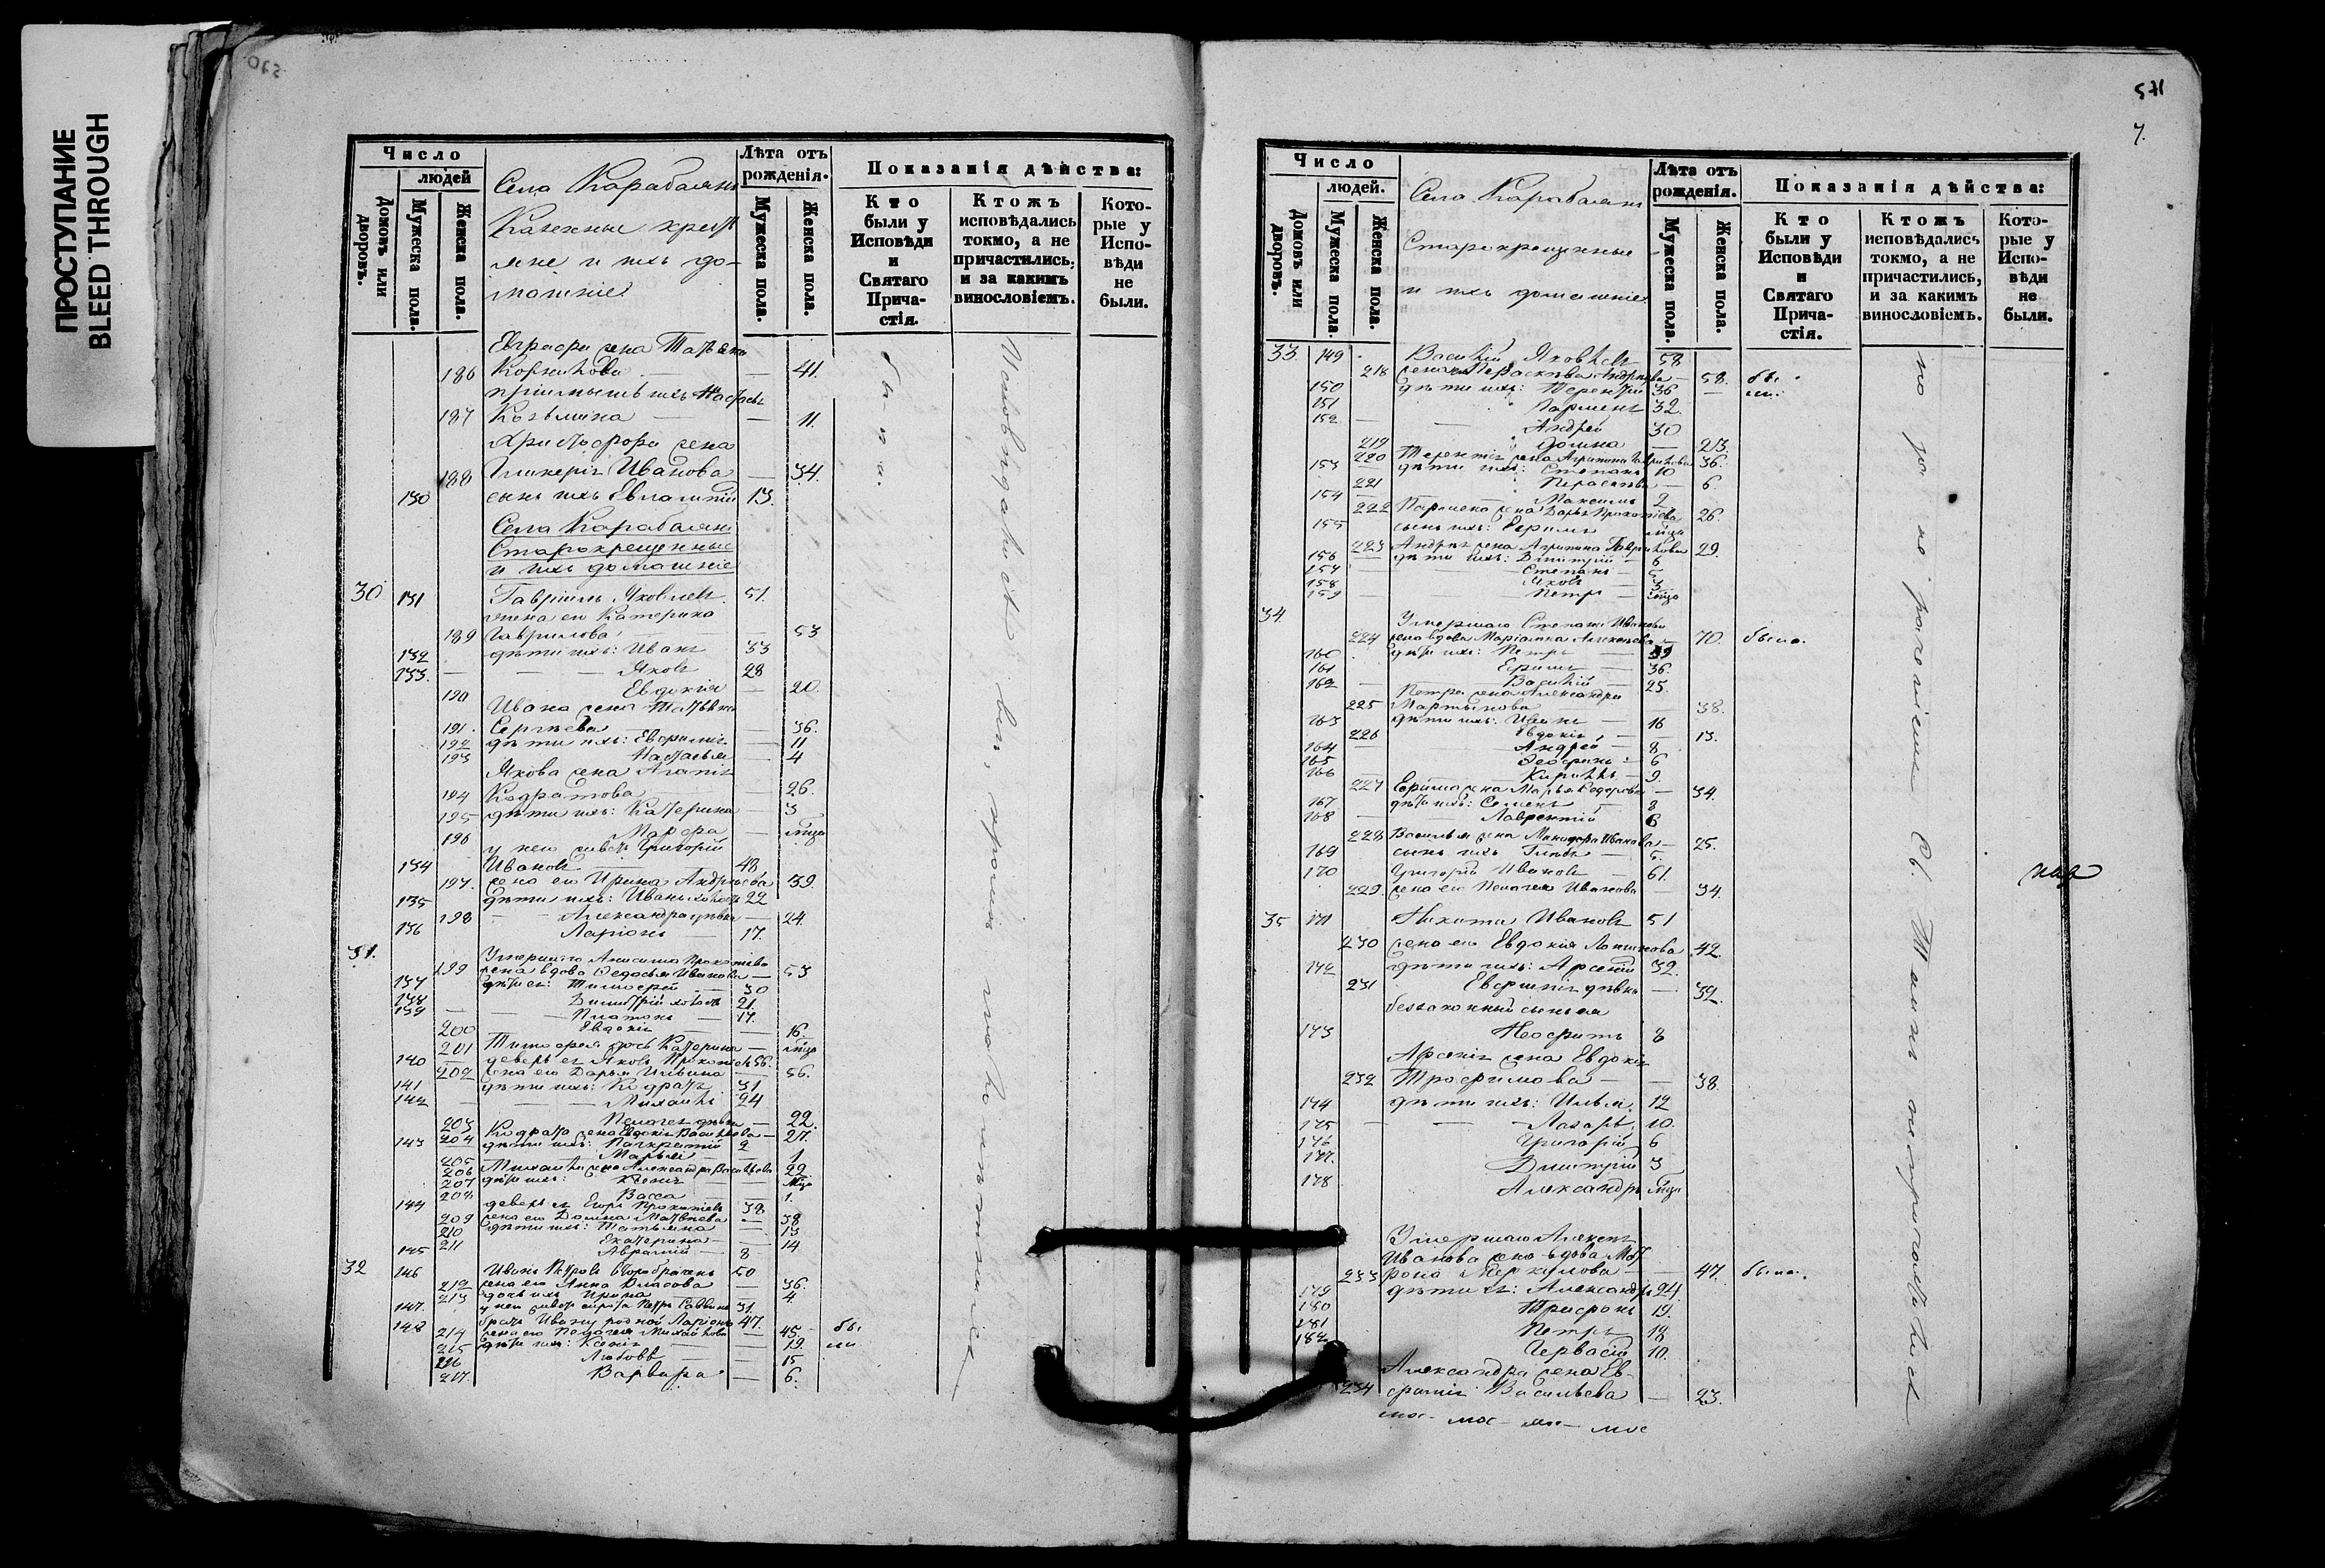 ПРОСТУПАНИЕ
BLEED THROUGH
570
Число
людей
Домовъ или дворовъ.
Мужеска пола.
Женска пола.
Села Карабаянъ
Казенные крестъ
яне и ихъ до-
машніе
Лѣта отъ рожденія.
Мужеска пола.
Женска пола.
Показанія дѣйства:
Кто были у Исповѣди и Святаго Прича-стія.
Ктожъ исповѣдались токмо, а не причастились, и за какимъ винословіемъ.
Кото-рые у Испо-вѣди не были.
Евграфа жена Татьяна
186 Корнилова — 41.
пріемышъ ихъ Настасья
187 Козьмина — 11.
была.
Христофора жена
188 Гликерія Иванова — 34.
130 сынъ ихъ Евлампій 13.
Села Карабаянъ
Старокрещенные
и ихъ домашніе
30 131 Гавріилъ Яковлевъ 51.
жена его Катерина
189 Гаврилова — 53
132 дѣти ихъ: Иванъ 33
133. — Яковъ 28
190 Евдокія — 20.
Ивана жена Татьяна
191. Сергѣева — 36.
192 дѣти ихъ: Евфимія — 11
193 Настасья — 4
Якова жена Агапія
194 Кодратова 26.
195 дѣти ихъ: Катерина 3
196 Марфа — мца
у него живетъ Григорій
134 Ивановъ 48
197. жена его Ирина Андреева 39.
135 дѣти ихъ: Иванъ холостъ 22
198 — Александра дѣвка — 24.
136 Ларіонъ 17.
31. Умершаго Анисима Прокопіева
199 жена вдова Федосья Иванова — 53
137 дѣти ея: Тимофей — 30
138 Димитрій холостъ 21.
139 — Платонъ — 17.
200 Евдокія — 16.
201 Тимофея дочь Катерина — мца
140 деверь ея Яковъ Прокопіевъ 56.
202 жена его Дарья Ильина — 56.
141 дѣти ихъ: Кодратъ 31
142 — Михаилъ 24
203 Пелагея дѣвка — 22.
204 Кодрата жена Евдокія Васильева — 27.
143 дѣти ихъ: Панкратій 2
205 Марья — 1
206 Михаила жена Александра Васильева 22
207 дѣти ихъ: Ксенія — мца
208 Васса — 1.
144 деверь ея Егоръ Прокопіевъ 38
209 жена его Домна Матвѣева — 38
210 дѣти ихъ: Татьяна — 13
211 Екатерина — 14
145 Аврамій — 8
32 146 Иванъ Петровъ второбраченъ 50
212 жена его Анна Власова — 36.
213 дочь ихъ Ирина — 4.
147. у него живетъ сирота Петръ Саввинъ 31.
148 братъ Ивану родной Ларіонъ 47.
214 жена его Пелагея Михайлова — 45. бы
215 дѣти ихъ: Ксенія — 19. ли
216 Любовь — 15
217. Варвара — 6.
571
7.
Число
людей.
Домовъ или дворовъ.
Мужеска пола.
Женска пола.
Села Карабаянъ
Старокрещенные
и ихъ домашніе
Лѣта отъ рожденія.
Мужеска пола.
Женска пола.
Показанія дѣйства:
Кто были у Исповѣди и Святаго Прича-стія.
Ктожъ исповѣдались токмо, а не причастились, и за какимъ винословіемъ.
Кото-рые у Испо-вѣди не были.
33 149 Василій Яковлевъ 58
218 жена его Параскева Андреева — 58. бы
150 дѣти ихъ: Терентій 36 — ли.
151 Парменъ 32.
152 — Андрей 30
219 Домна — 23.
220 Терентія жена Агрипина Гаврилова 36.
153 дѣти ихъ: Степанъ 10
221 Параскева — 6.
154 — Максимъ 2
222 Пармена жена Дарья Прокопіева 26.
155 сынъ ихъ: Ефремъ мца
223 Андрея жена Агрипина Гаврилова 29.
156 дѣти ихъ: Дмитрій — 6
157 Степанъ — 5
158 Яковъ — 3
159 — Петръ — мца
34 Умершаго Степана Иванова
224 жена вдова Маріамна Алексѣева — 70. была.
160 дѣти ихъ: Петръ — 39
161 Ефимъ — 36.
162 Василій — 25.
Петра жена Александра
225 Мартынова — 38.
163 дѣти ихъ: Иванъ — 16
226 Евдокія — 13.
164 Андрей — 8
165 Зеоеринъ — 6
166 Кириллъ — 9.
227 Ефима жена Марья Федорова — 34.
167 дѣти ихъ: Семенъ — 8
168 — Лаврентій 6
228 Василья жена Минидора Иванова — 25.
169 сынъ ихъ Глѣбъ — 5.
170 Григорій Ивановъ — 61.
229. жена его Пелагея Иванова — 34.
35 171 Никита Ивановъ 51
230 жена его Евдокія Логинова 42.
172 дѣти ихъ: Арсеній 32.
231 Евфимія дѣвка — 32.
беззаконный сынъ ея
173 Неофитъ 8
Арсенія жена Евдокія
232 Трофимова — 38.
174 дѣти ихъ: Илья 12
175 — Лазарь 10.
176 Григорій 6
177. Димитрій 3
178 Александръ мца
Умершаго Алексѣя
Иванова жена вдова Мат
233 рона Меркулова — 47. была.
179 дѣти ея: Александръ 24.
180 Трифонъ 19.
181 Петръ 18
182 Гервасій 10.
Александра жена Ев-
234 фимія Васильева — 23.